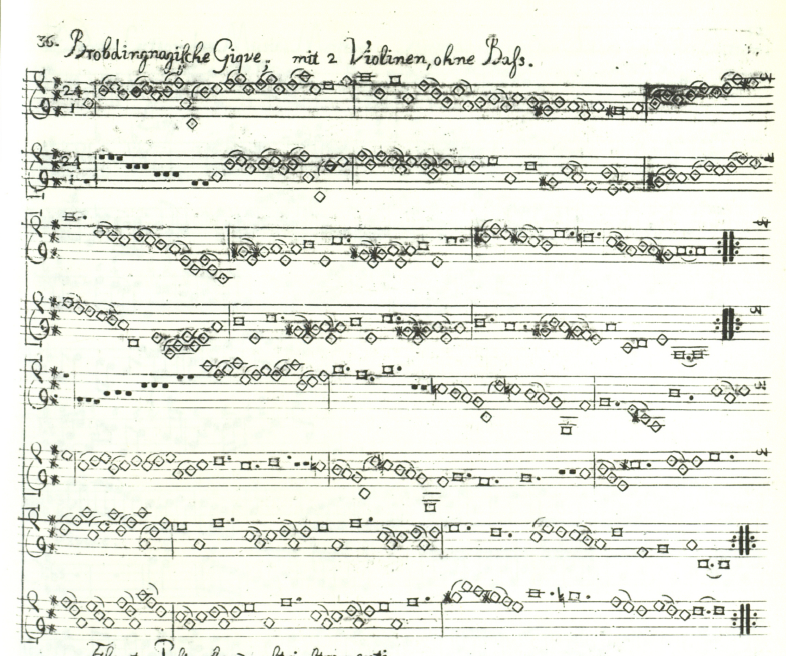 36. Brobdingnagische Gique; mit 2 Violinen, ohne Bass.
24
1
24
1